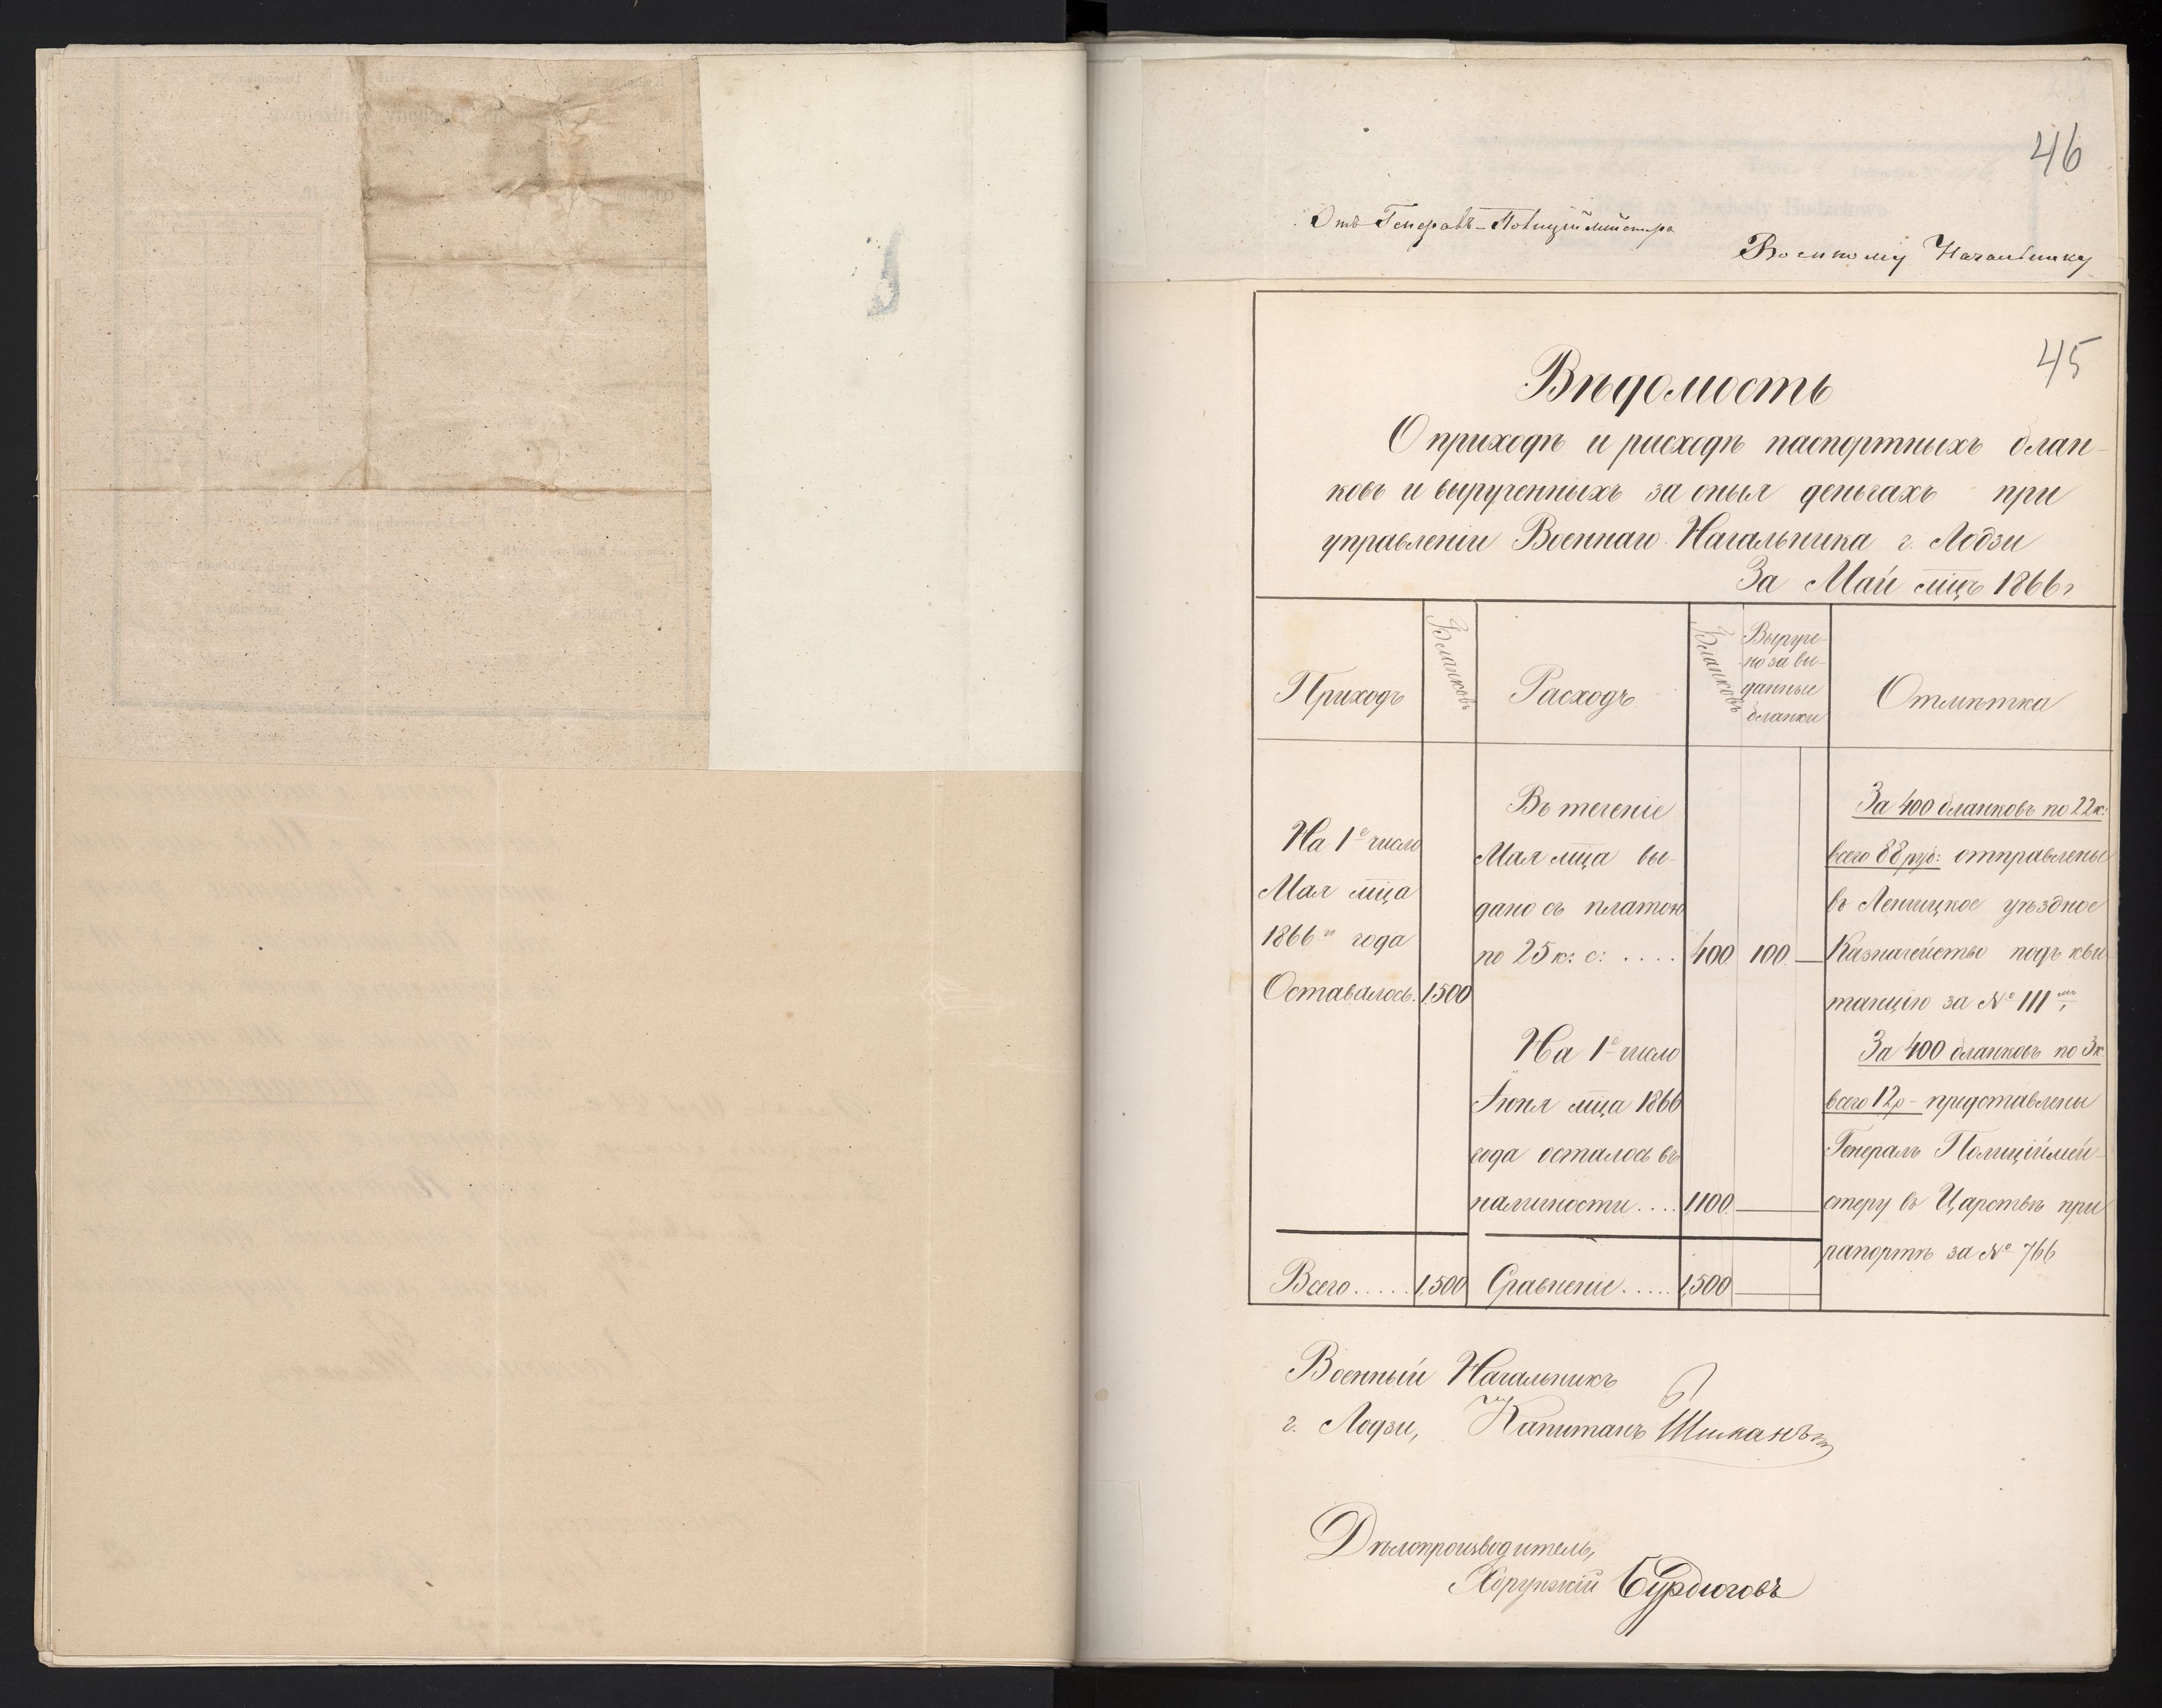 46
Отъ Генералъ-Полиціймейстра
Военному Начальнику
45
Вѣдомость
О приходѣ и расходѣ паспортныхъ блан-
ковъ и вырученныхъ за оныя деньгахъ при
управленіи Военнаго Начальника г. Лодзи
За Май мцъ 1866 г
Приходъ
Бланковъ
Расходъ
Бланковъ
Выруче-
но за вы-
данные
бланки
Отмѣтка
На 1е число
Мая мца
1866го года
Оставалось. 1,500
Въ теченіе
Мая мца вы-
дано съ платою
по 25 к: с: .... 400 100 —
На 1е число
Іюня мца 1866
года осталось въ
наличности.... 1,100 —
За 400 бланковъ по 22 к:
всего 88 руб: отправлены
въ Ленчицкое уѣздное
Казначейство подъ кви-
танцію за № 111
За 400 бланковъ по 3 к.
всего 12 р - представлены
Генералъ Полиціймей-
стеру въ Царствѣ при
рапортѣ за № 766
Всего..... 1,500 Сравненіе..... 1,500 —
Военный Начальникъ
г. Лодзи, Капитанъ
Дѣлопроизводитель,
Хорунжій Бурдюговъ